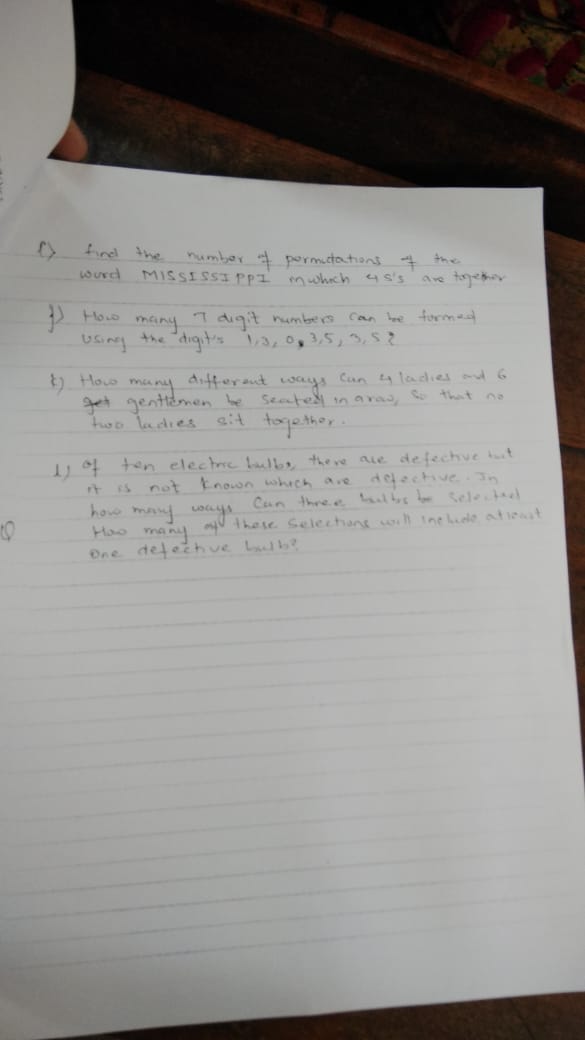 i) find the number of permutations of the
word MISSISSIPPI in which 4 s's are together
j) How many 7 digit numbers can be formed
Using the digit's 1,3, 0, 3,5, 3,5?
k) How many different ways can 4 ladies and 6
get gentlemen be seated in a raw, so that no
two ladies sit together.
l) of ten electric bulbs, there are defective but
it is not known which are defective. In
how many ways can three bulbs be selected
How many of these selections will include atleast
One defective bulb?